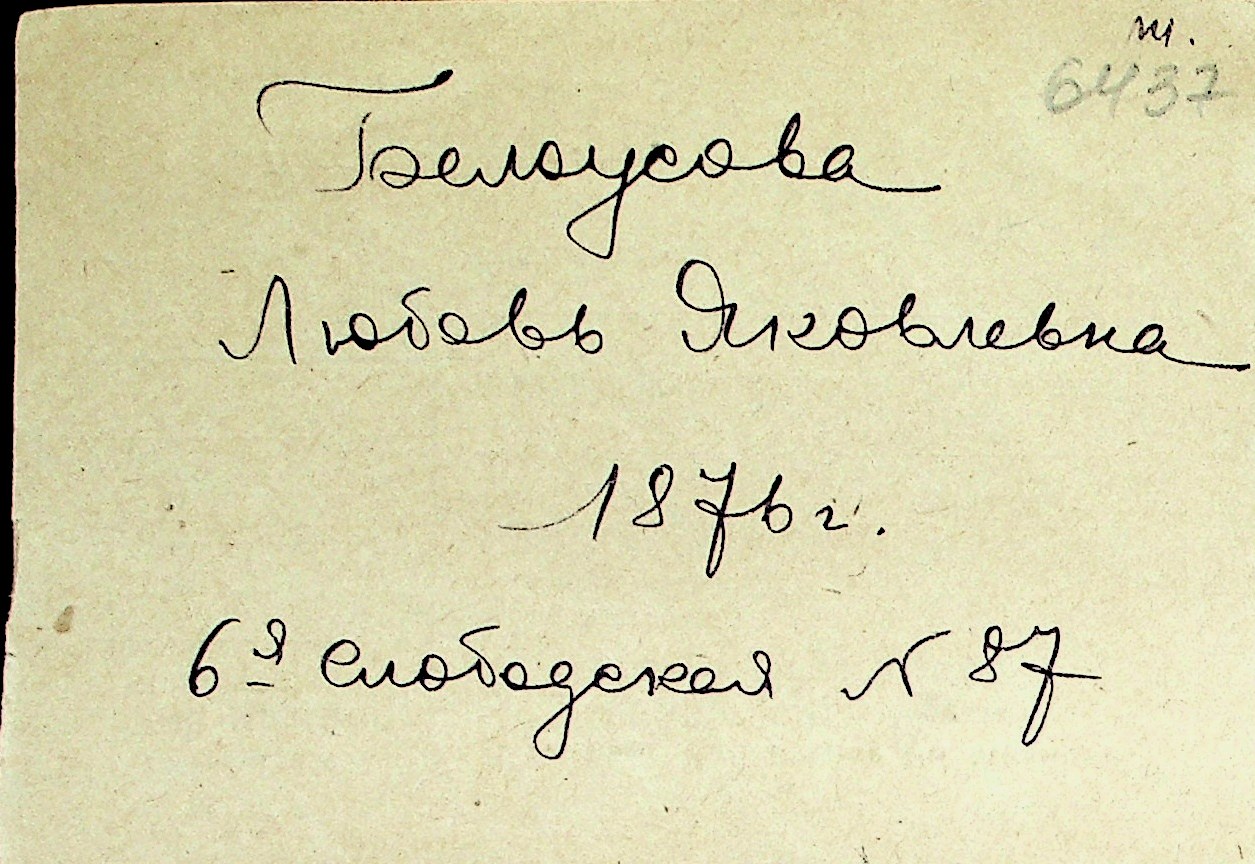 6437
Белоусова
Любовь Яковлевна
1876 г.
6я Слободская N 87